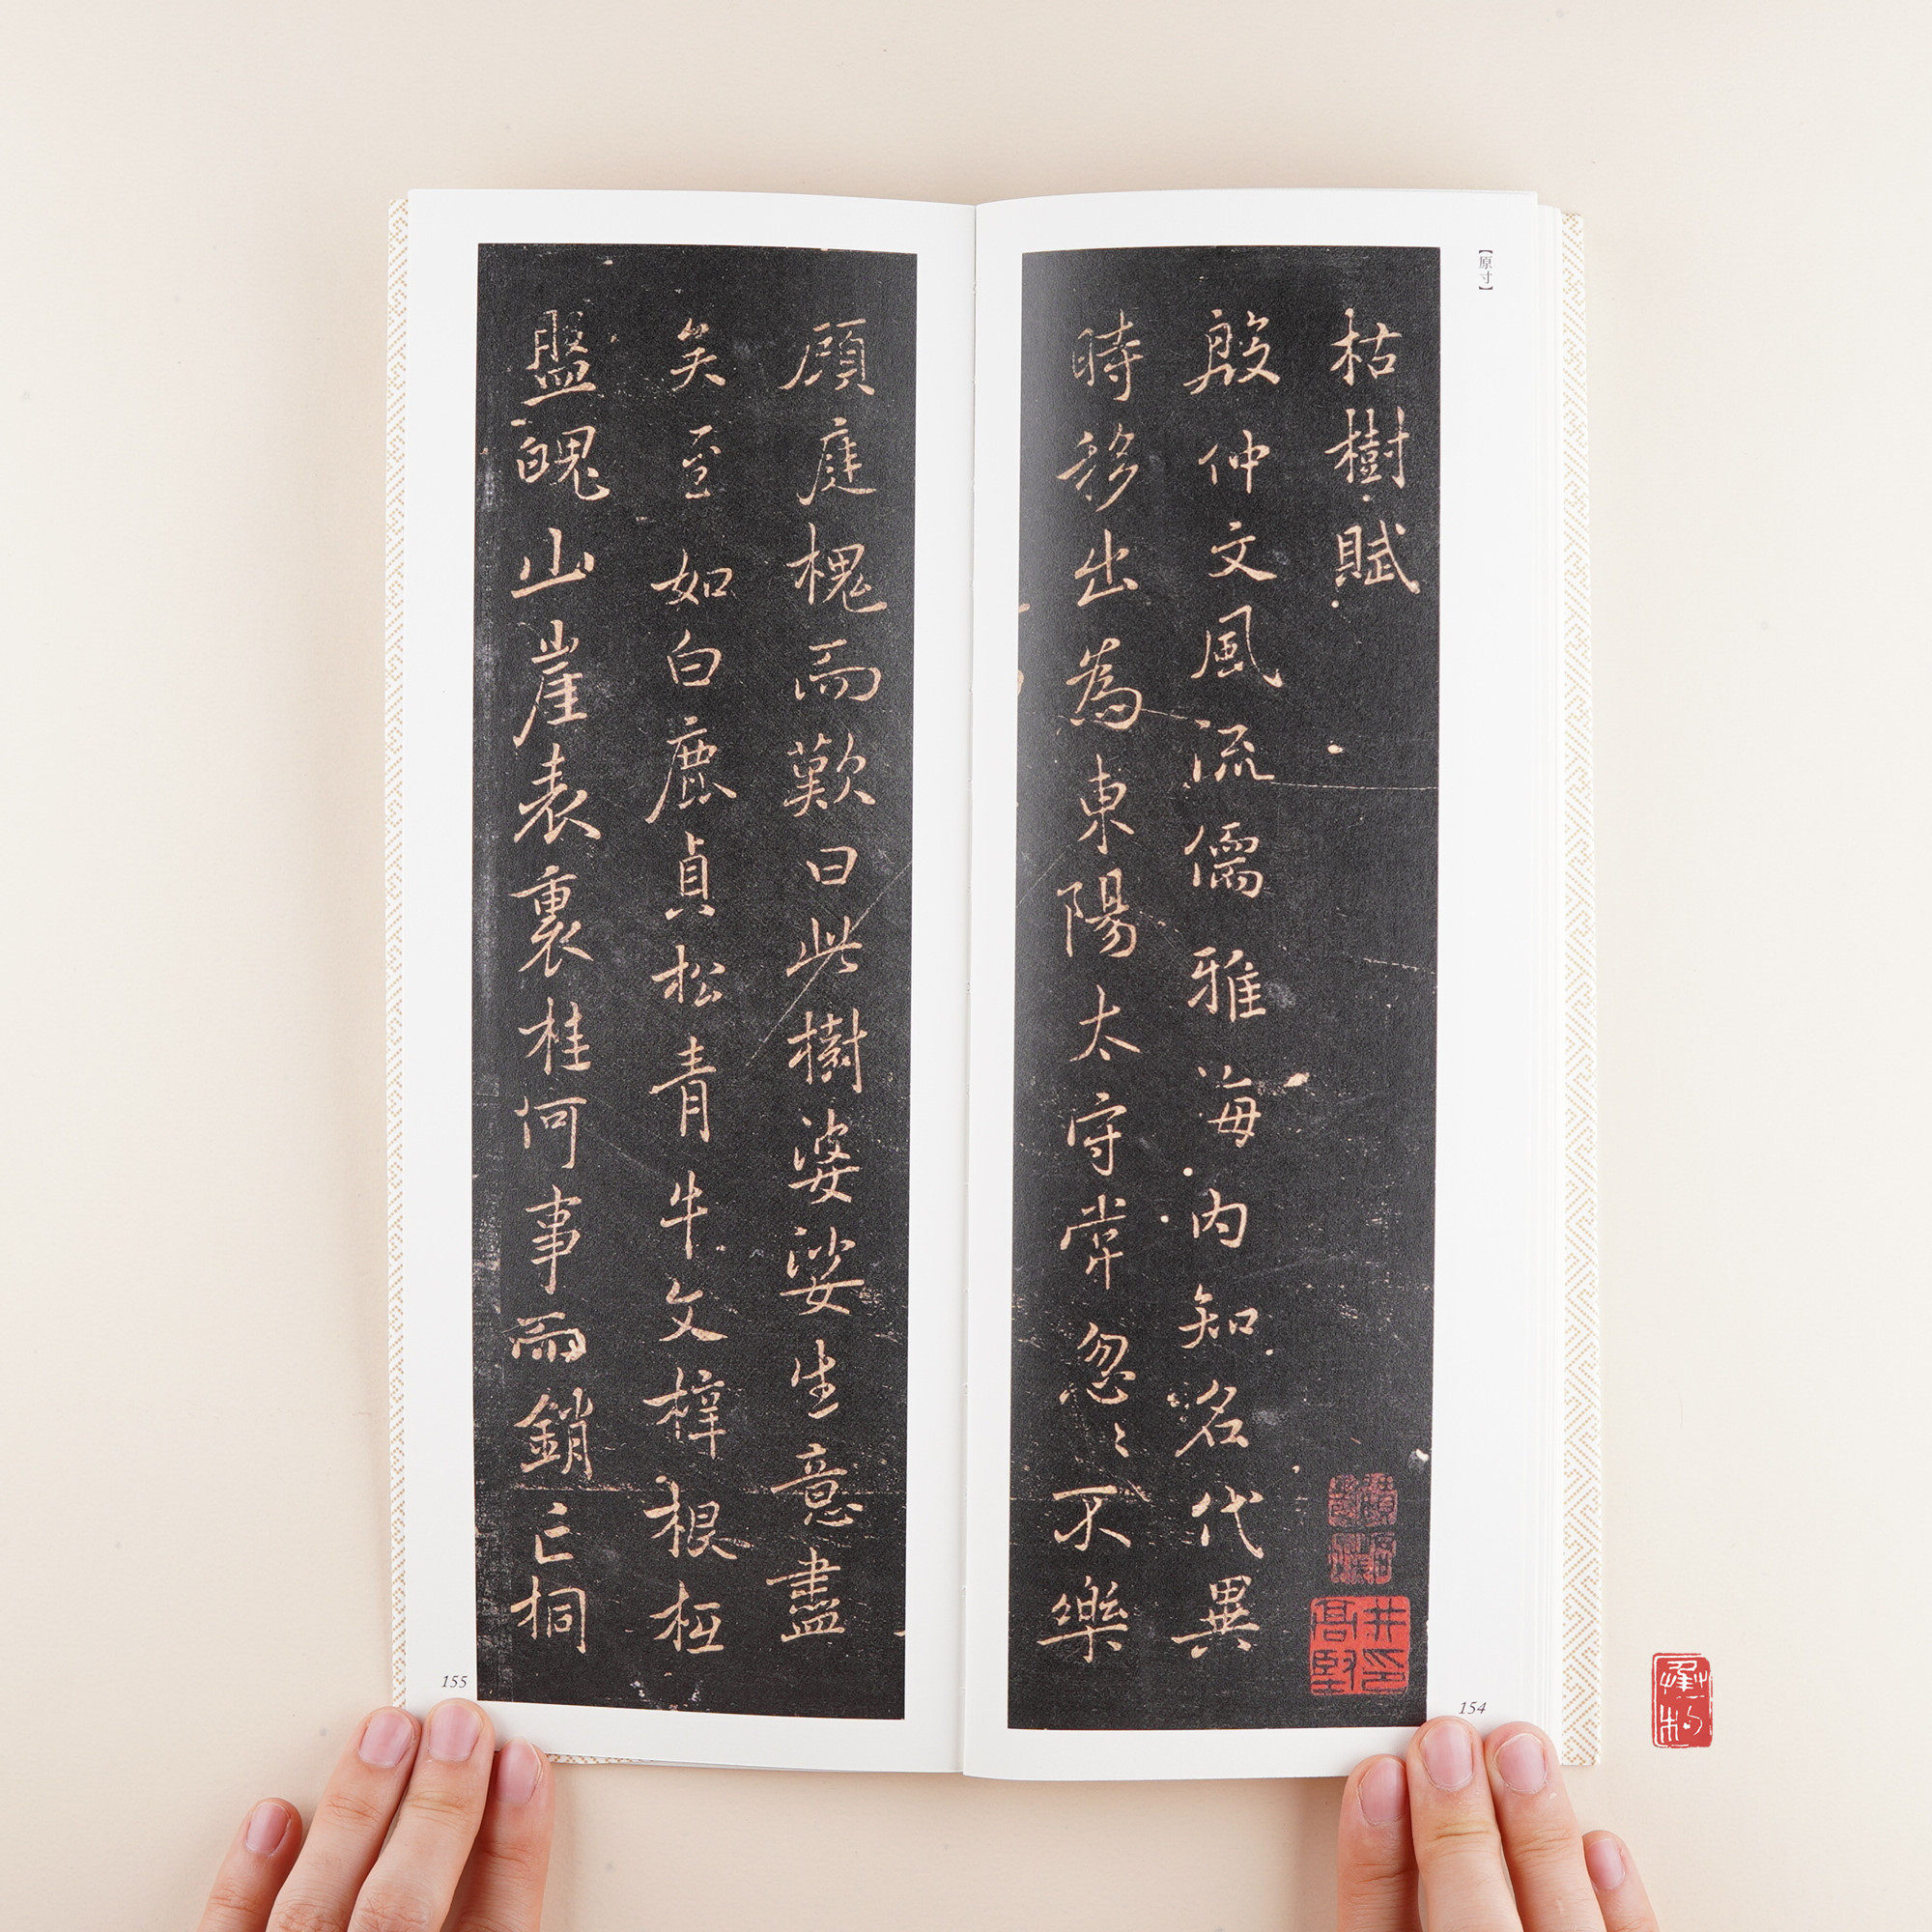 【原寸】
枯樹賦
殷仲文風流儒雅海内知名代異
時移出為東陽太守常忽〻不樂
顧庭槐而歎曰此樹婆娑生意盡
矣至如白鹿貞松青牛文梓根柢
盤魄山崖表裏桂何事而銷亡桐
154
155